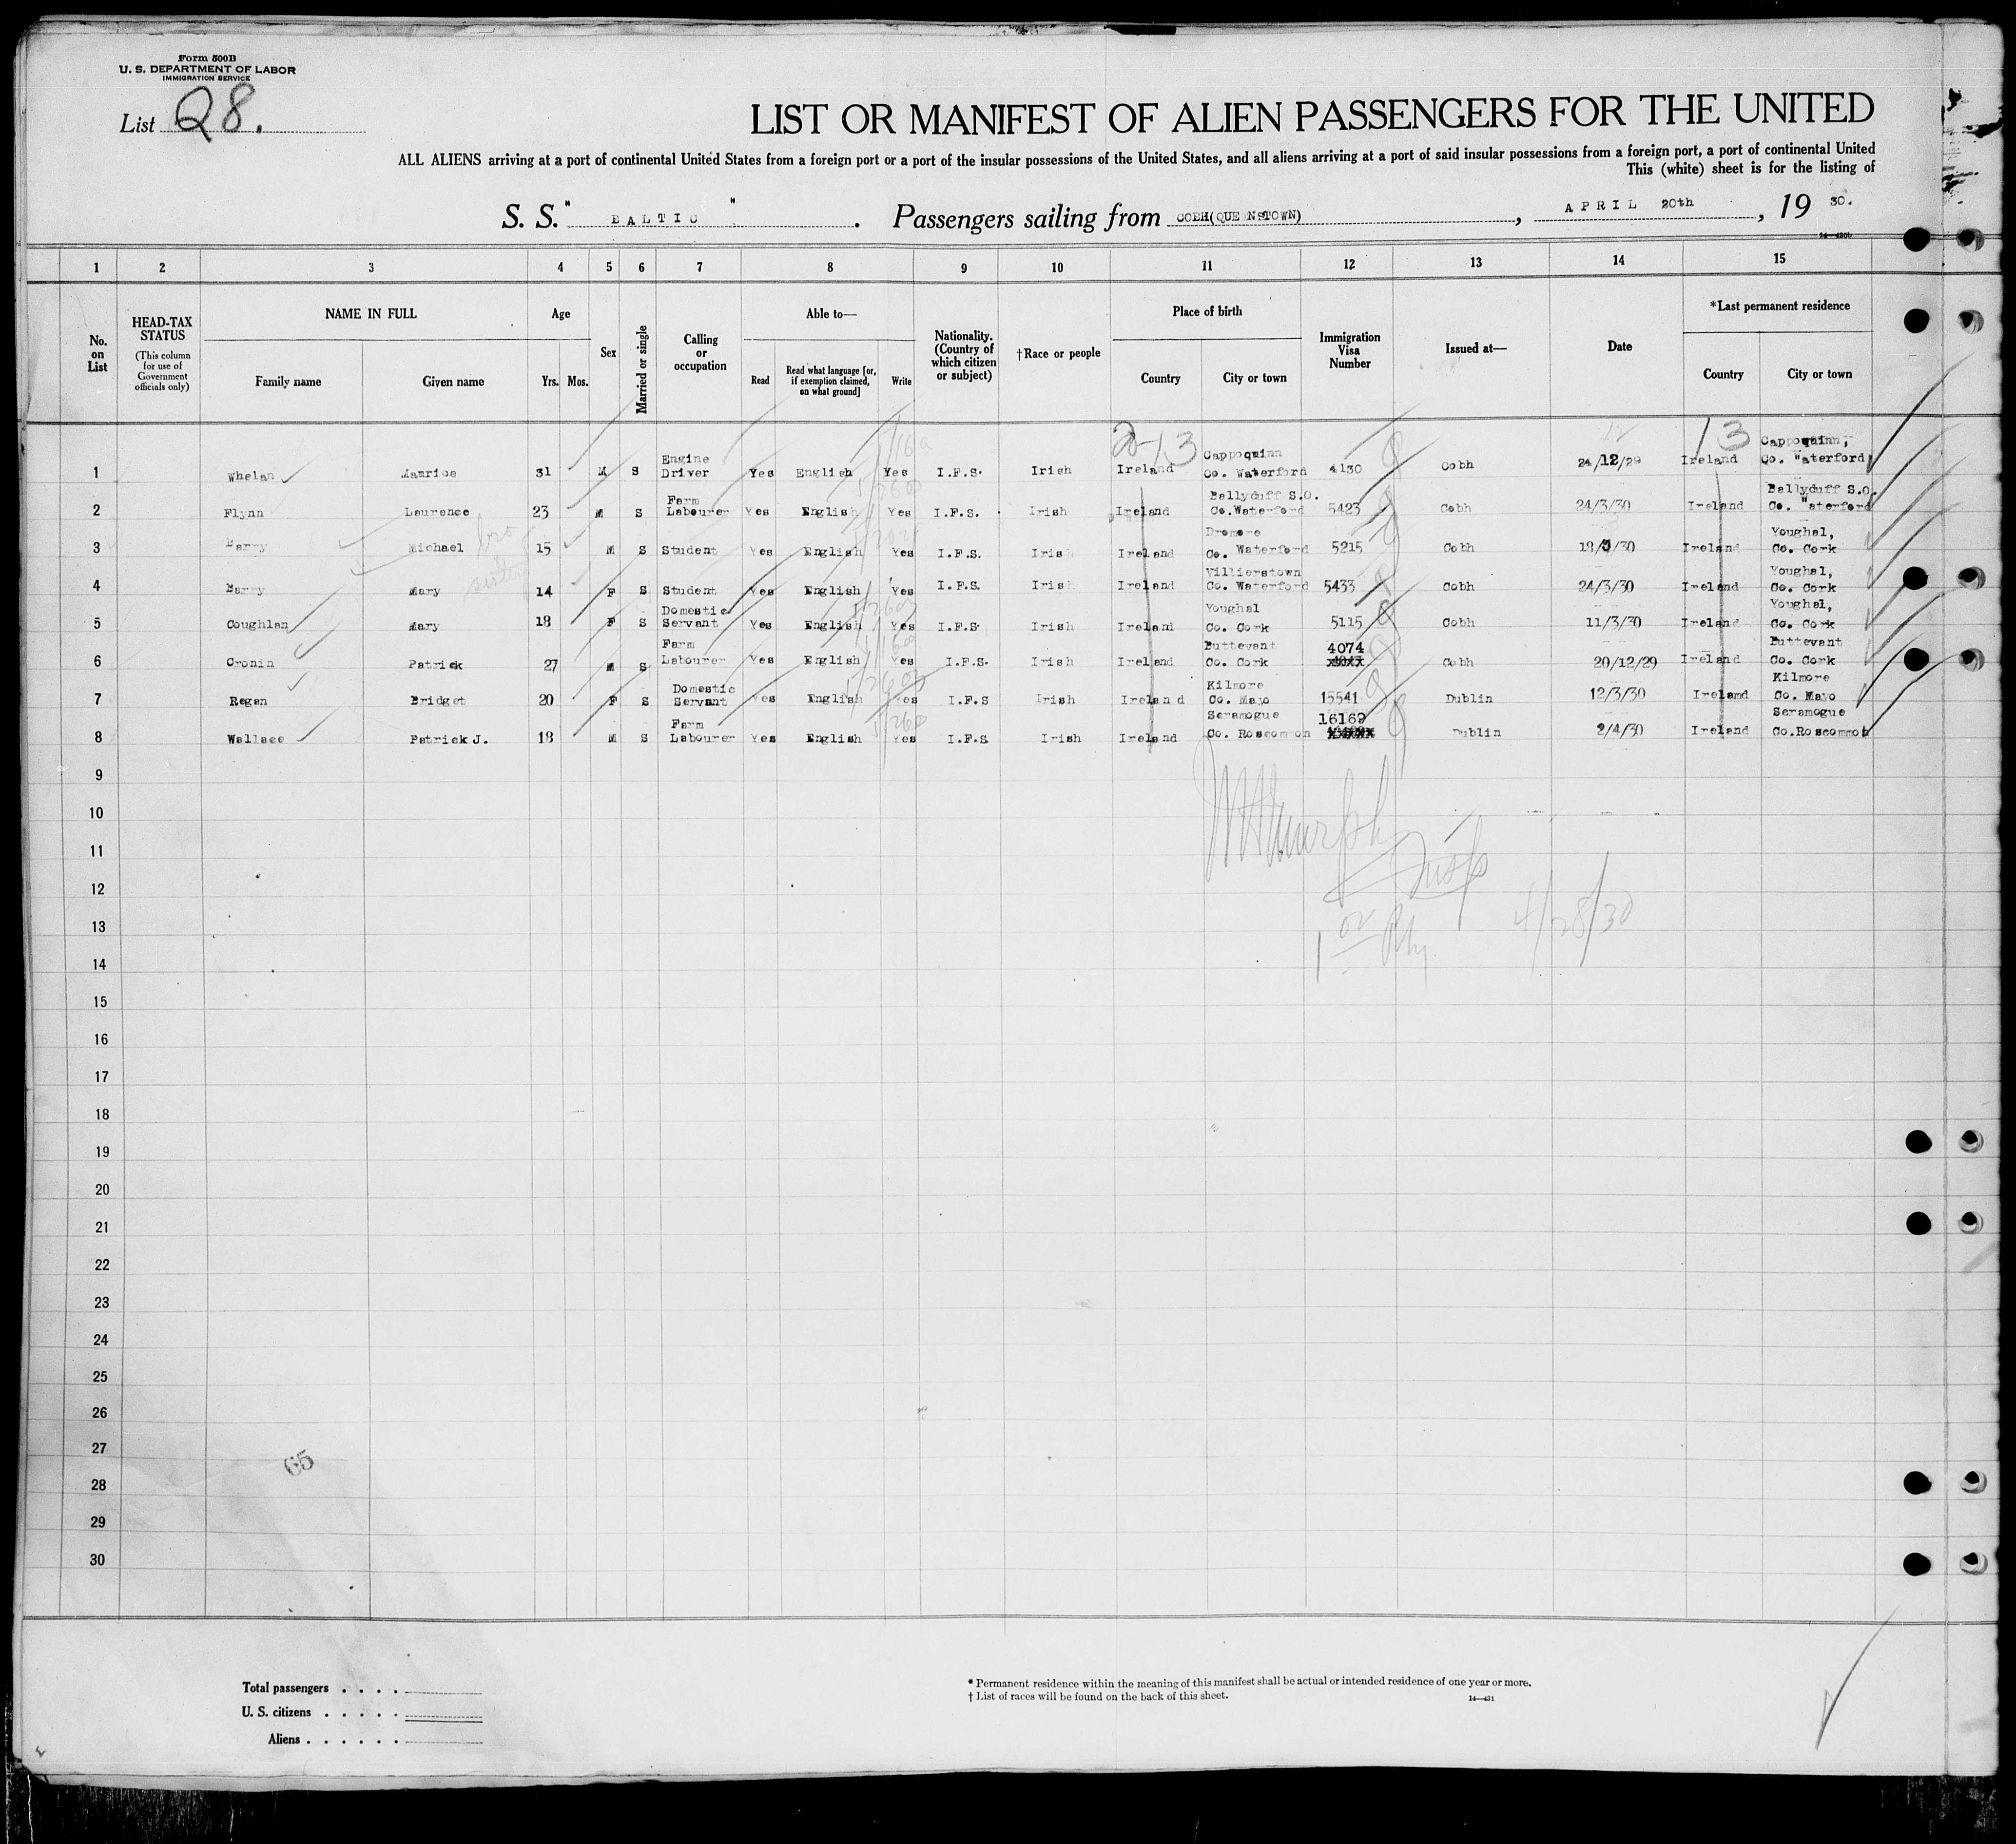 Form 500B
U. S. DEPARTMENT OF LABOR
IMMIGRATION SERVICE
List 28.
LIST OR MANIFEST OF ALIEN PASSENGERS FOR THE UNITED
ALL ALIENS arriving at a port of continental United States from a foreign port or a port of the insular possessions of the United States, and all aliens arriving at a port of said insular possessions from a foreign port, a port of continental United
This (white) sheet is for the listing of
S. S. " BALTIC " . Passengers sailing from COBH(QUEENSTOWN) , APRIL 20th , 19 30.
1 2 3 4 5 6 7 8 9 10 11 12 13 14 15
No. on List
HEAD-TAX STATUS
(This column for use of Government officials only)
NAME IN FULL
Family name Given name
Age
Yrs. Mos.
Sex
Married or single
Calling or occupation
Able to—
Read Read what language [or, if exemption claimed, on what ground] Write
Nationality. (Country of which citizen or subject)
†Race or people
Place of birth
Country City or town
Immigration Visa Number
Issued at—
Date
*Last permanent residence
Country City or town
20-13 13
1 Whelan Maurice 31 M S Engine Driver Yes English Yes I.F.S. Irish Ireland Cappoquinn Co. Waterford 4130 Cobh 24/12/29 Ireland Cappoquinn, Co. Waterford
2 Flynn Laurence 23 M S Farm Labourer Yes English Yes I.F.S. Irish Ireland Ballyduff S.O. Co.Waterford 5423 Cobh 24/3/30 Ireland Ballyduff S.O. Co. Waterford
bro
3 Barry Michael 15 M S Student Yes English Yes I.F.S. Irish Ireland Dromore Co. Waterford 5215 Cobh 18/3/30 Ireland Youghal, Co. Cork
sister
4 Barry Mary 14 F S Student Yes English Yes I.F.S. Irish Ireland Villierstown Co. Waterford 5433 Cobh 24/3/30 Ireland Youghal, Co. Cork
5 Coughlan Mary 18 F S Domestic Servant Yes English Yes I.F.S. Irish Ireland Youghal Co. Cork 5115 Cobh 11/3/30 Ireland Youghal, Co. Cork
6 Cronin Patrick 27 M S Farm Labourer Yes English Yes I.F.S. Irish Ireland Buttevant Co. Cork 4074 Cobh 20/12/29 Ireland Buttevant Co. Cork
7 Regan Bridget 20 F S Domestic Servant Yes English Yes I.F.S Irish Ireland Kilmore Co. Mayo 15541 Dublin 12/3/30 Ireland Kilmore Co. Mayo
8 Wallace Patrick J. 18 M S Farm Labourer Yes English Yes I.F.S Irish Ireland Scramogue Co. Roscommon 16169 Dublin 2/4/30 Ireland Scramogue Co.Roscommon
9
10
11
12
13
4/28/30
14
15
16
17
18
19
20
21
22
23
24
25
26
27
65
28
29
30
Total passengers . . . .
U. S. citizens . . . . .
Aliens . . . . . .
* Permanent residence within the meaning of this manifest shall be actual or intended residence of one year or more.
† List of races will be found on the back of this sheet.
14—431